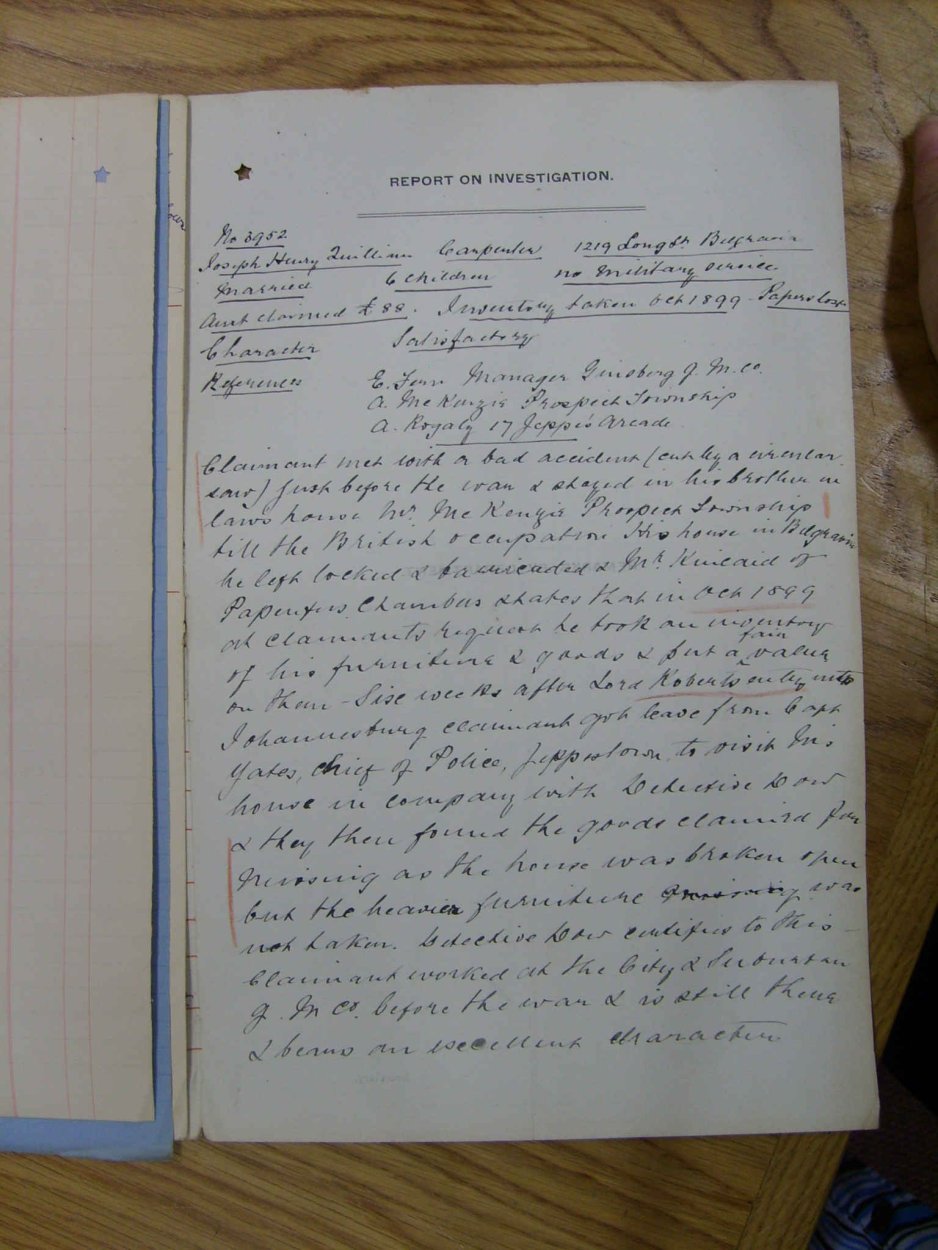 REPORT ON INVESTIGATION.
No 3952
Joseph Henry Quillian Carpenter 1219 Long St. Belgravia
Married 6 Children no military service
Amt claimed £88. Inventory taken Oct 1899 - Papers lost
Character Satisfactory
References E. Manager Ginsberg G. M. Co.
A. McKenzie Prospect Township
A. Rogaly 17 Jeppe's Arcade
Claimant met with a bad accident (cut by a circular
saw) just before the war & stayed in his brother in
laws house Mr. McKenzie Prospect Township
till the British occupation His house in Belgravia
he left locked & barricaded & Mr. Kincaid of
Papenfus Chambers states that in Oct 1899
at claimants request he took an inventory
of his furniture & goods & put a fair value
on them - Six weeks after Lord Roberts entry into
Johannesburg claimant got leave from Capt
Yates, chief of Police, Jeppestown, to visit his
house in company with Detective Dow
& they then found the goods claimed for
missing as the house was broken open
but the heavier furniture was
not taken. Detective Dow certifies to this -
Claimant worked at the City & Suburban
G. M Co. before the war & is still there
& bears an excellent character